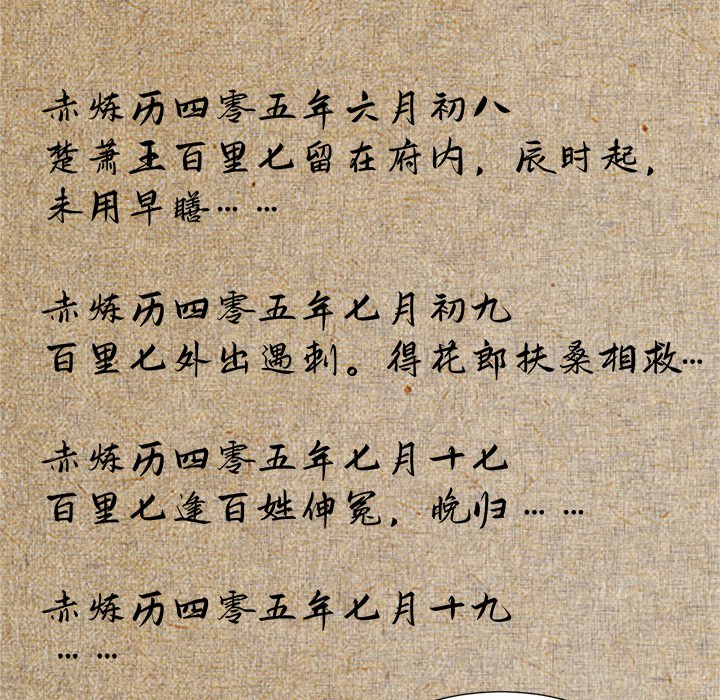 赤炼历四零五年六月初八
楚萧王百里七留在府内，辰时起，
未用早膳… …
赤炼历四零五年七月初九
百里七外出遇刺。得花郎扶桑相救…
赤炼历四零五年七月十七
百里七逢百姓伸冤，晚归… …
赤炼历四零五年七月十九
… …